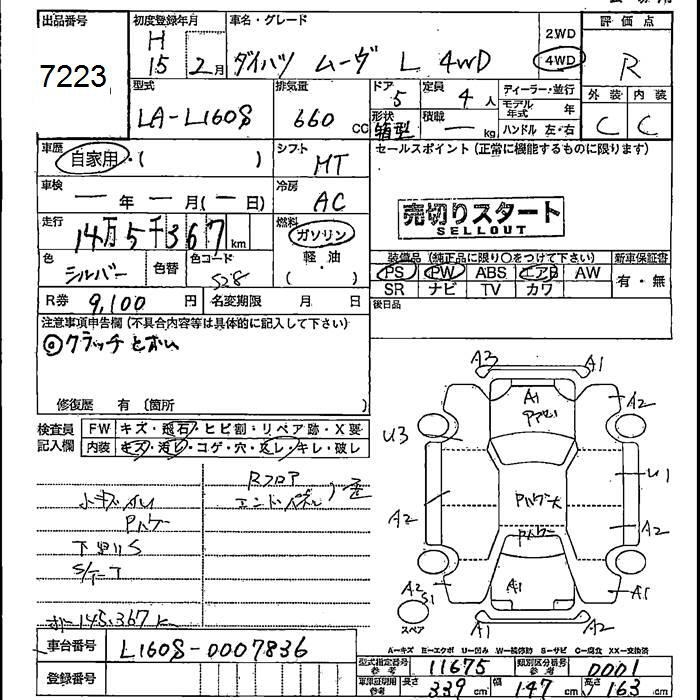 出品番号 初度登録年月 車名・グレード 2WD 評価点
7223 H 15 2月 ダイハツ ムーヴ L 4WD 4WD R
型式 排気量 ドア 5 定員 4人 ディーラー・並行 外装 内装
LA-L160S 660 CC 形状 箱型 積載 — kg モデル年式 年 C C
ハンドル 左・右
車歴 自家用・( ) シフト MT セールスポイント (正常に機能するものに限ります)
車検 — 年 — 月(— 日) 冷房 AC
売切りスタート
SELLOUT
走行 14万5千367km 燃料 ガソリン
軽・油
( )
色 シルバー 色替 色コード S28
装備品 (純正品に限り○をつけて下さい) 新車保証書
PS PW ABS エアB AW 有・無
SR ナビ TV カワ
R券 9,100円 名変期限 月 日 後日品
注意事項申告欄 (不具合内容等は具体的に記入して下さい)
◎クラッチ
修復歴 有 (箇所 )
検査員 FW キズ・飛石・ヒビ割・リペア跡・X要
記入欄 内装 キズ・汚レ・コゲ・穴・スレ・キレ・破レ
Rフロア
エンドパネル
小キズ
Pハゲ
下廻りS
145,367 K
A3 A1
A1 A2
U3
U1
Pハゲ大
A2 Pハゲ A2
A2 S1 A1 A1
スペア A1 A2
A-キズ E-エクボ U-凹み W-補修跡 S-サビ C-腐食 XX-交換済
車台番号 L160S-0007836
型式指定番号 参考 11675 類別区分番号 参考 0001
登録番号 車庫証明用 参考 長さ 339cm 幅 147cm 高さ 163cm